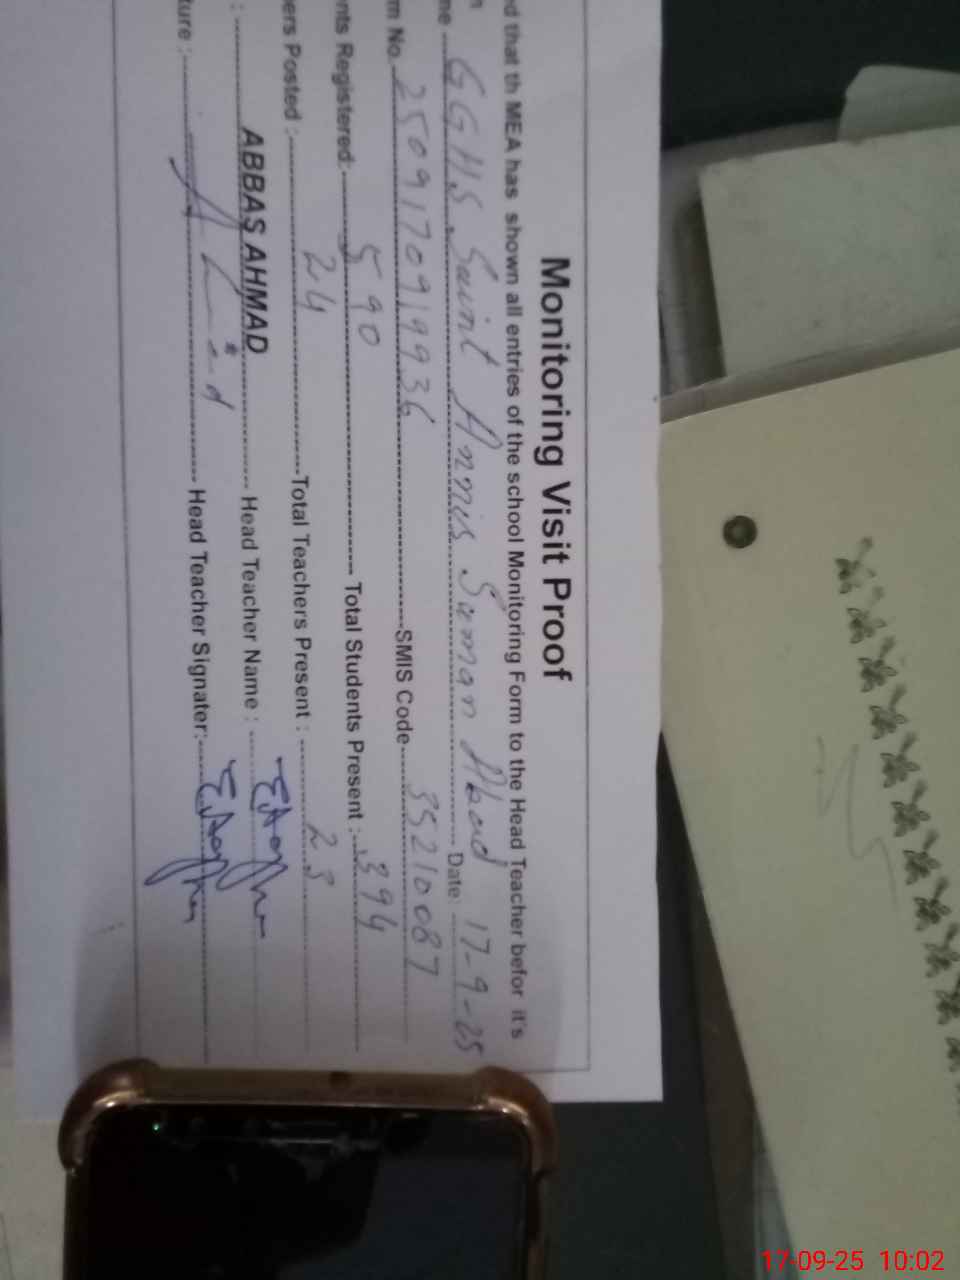 Monitoring Visit Proof
d that th MEA has shown all entries of the school Monitoring Form to the Head Teacher befor it's
me GGHS Saint Annis Saman Abad Date 17-9-25
m No. 2509170919936 SMIS Code 35210087
nts Registered: 590 Total Students Present : 394
ers Posted : 24 Total Teachers Present : 23
: ABBAS AHMAD Head Teacher Name :
ture : Head Teacher Signater:
17-09-25 10:02